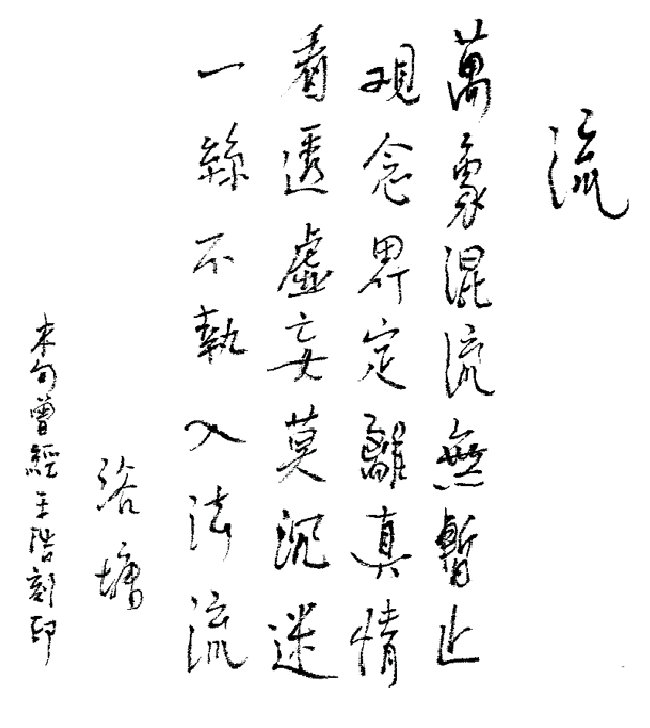 流
萬象混流無暫止
观念界定離真情
看透虛妄莫沉迷
一絲不執入法流
浴塘
末句曾經王浩刻印